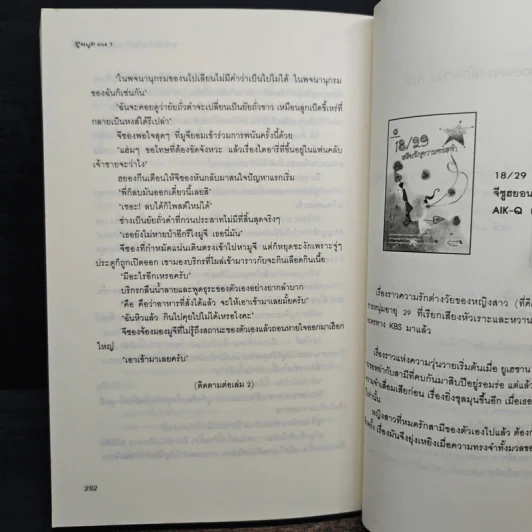 "ในพจนานุกรมของนโปเลียนไม่มีคำว่าเป็นไปไม่ได้ ในพจนานุกรม
ของฉันก็เช่นกัน"
"ฉันจะคอยดูว่ายัยถั่วดำจะเปลี่ยนเป็นยัยถั่วขาว เหมือนลูกเป็ดขี้เหร่ที่
กลายเป็นหงส์ได้รึเปล่า"
จีซองพอใจสุดๆ ที่มูจียอมเข้าร่วมการพนันครั้งนี้ด้วย
"แฮ่มๆ ขอโทษที่ต้องขัดจังหวะ แล้วเรื่องไดอารี่ที่ขึ้นอยู่ในแฟนคลับ
เจ้าชายจะว่าไง"
ฮยองกึนเตือนให้จีซองหันกลับมาสนใจปัญหาแรกเริ่ม
"พี่ก็ลบมันออกเดี๋ยวนี้เลยสิ"
"เชอะ! ลบได้ก็โพสต์ใหม่ได้"
ช่างเป็นยัยถั่วดำที่กวนประสาทไม่มีที่สิ้นสุดจริงๆ
"เธอยังไม่หายบ้าอีกรึไงมูจี เธอนี่มัน"
จีซองที่กำหมัดแน่นเดินตรงเข้าไปหามูจี แต่ก็หยุดชะงักเพราะจู่ๆ
ประตูก็เปิดออก เขามองบริกรที่โผล่เข้ามาราวกับจะกินเลือดกินเนื้อ
"มีอะไรอีกเหรอครับ"
บริกรกลืนน้ำลายและพูดธุระของตัวเองอย่างยากลำบาก
"คือ คือว่าอาหารที่สั่งได้แล้ว จะให้เอาเข้ามาเลยมั้ยครับ"
"ฉันหิวแล้ว กินไปคุยไปไม่ได้เหรอไงคะ"
จีซองจ้องมองมูจีที่ไม่รู้ถึงสถานะของตัวเองแล้วถอนหายใจออกมาเฮือก
ใหญ่
"เอาเข้ามาเลยครับ"
(ติดตามต่อเล่ม 2)
282
18/29
18/29
จีซูฮยอน
AIK-Q
เรื่องราวความรักต่างวัยของหญิงสาว (ที่คิด
หนุ่มอายุ 29 ที่เรียกเสียงหัวเราะและหวาน
KBS มาแล้ว
เรื่องราวแห่งความวุ่นวายเริ่มต้นเมื่อ ยูเฮชาน
กับสามีที่คบกันมาสิบปีอยู่รอมร่อ แต่แล้ว
จำเสื่อมเสียก่อน เรื่องยิ่งชุลมุนขึ้นอีก เมื่อเธอ
เท่านั้น
หญิงสาวที่หมดรักสามีของตัวเองไปแล้ว ต้อง
ครั้ง เรื่องมันจึงยุ่งเหยิงเมื่อความทรงจำทั้งมวลของ